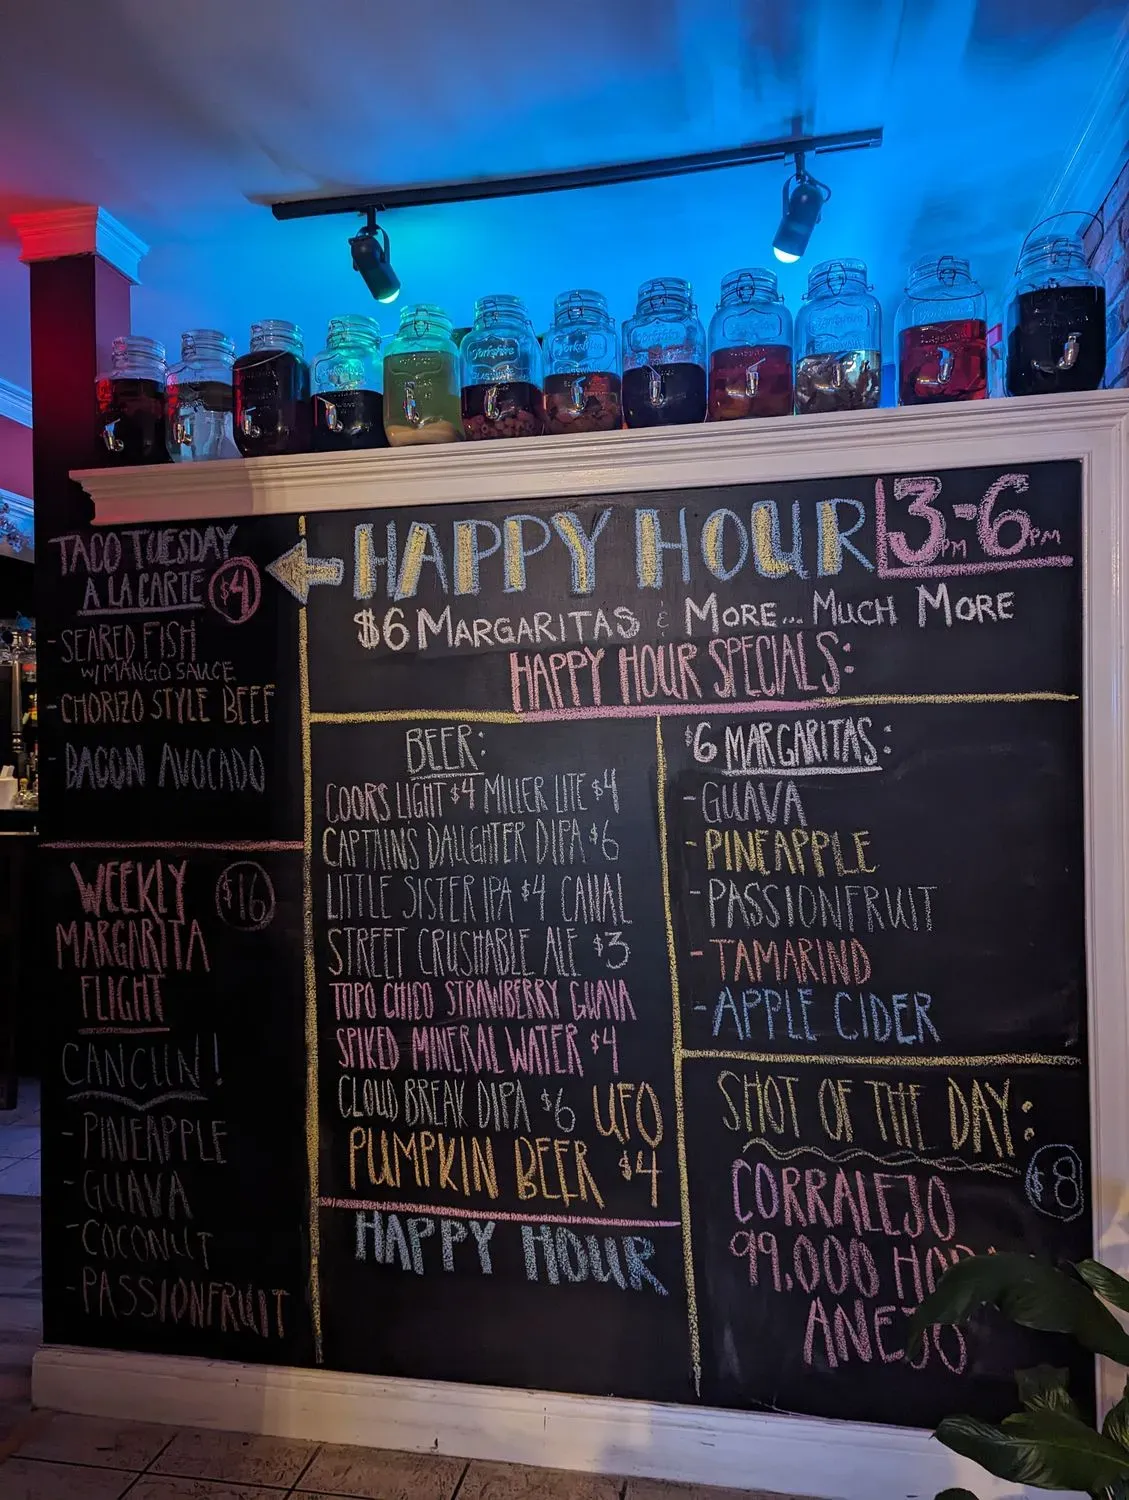 TACO TUESDAY
A LA CARTE $4
- SEARED FISH
W/ MANGO SAUCE
- CHORIZO STYLE BEEF
- BACON AVOCADO
WEEKLY $16
MARGARITA
FLIGHT
CANCUN!
- PINEAPPLE
- GUAVA
- COCONUT
- PASSIONFRUIT
HAPPY HOUR 3PM-6PM
$6 MARGARITAS & MORE... MUCH MORE
HAPPY HOUR SPECIALS:
BEER:
COORS LIGHT $4 MILLER LITE $4
CAPTAIN'S DAUGHTER DIPA $6
LITTLE SISTER IPA $4 CANAL
STREET CRUSHABLE ALE $3
TOPO CHICO STRAWBERRY GUAVA
SPIKED MINERAL WATER $4
CLOUD BREAK DIPA $6 UFO
PUMPKIN BEER $4
HAPPY HOUR
$6 MARGARITAS:
- GUAVA
- PINEAPPLE
- PASSIONFRUIT
- TAMARIND
- APPLE CIDER
SHOT OF THE DAY:
$8
CORRALEJO
99,000
ANEJO